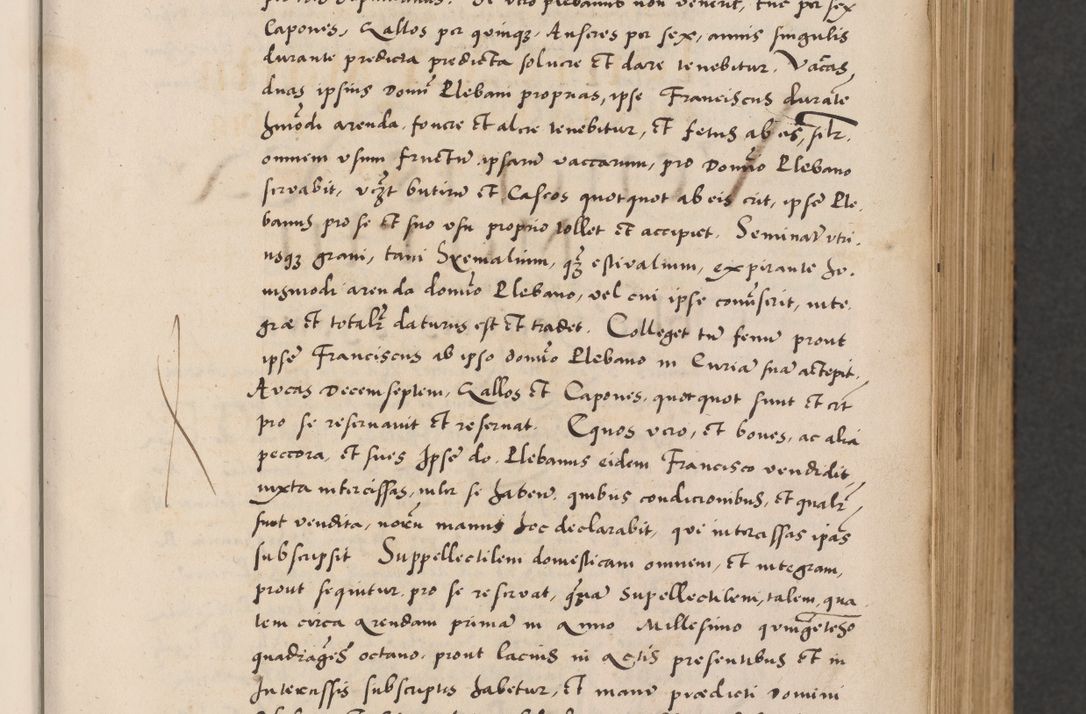 Capones, Gallos per quinq3, Anseres per sex, annis singulis
durante predicta predicta soluere et dare tenebitur. Vacas
duas ipsius Domi Plebani proprias, ipse Franciscus durate
hmodi arenda, fouere et alere tenebitur, et fetus ab eis, silr.
omnem usum fructu ipsaru vaccarum, pro Domio Plebano
seruabit, vczt butiru et Caseos quotquot ab eis erit, ipse Ple-
banus pro se et suo usu proprio tollet et accipiet. Seminar utri-
usq3 grani, tam Hyemalium, q3 estiualium, expirante hu-
iusmodi arenda domio Plebano, vel cui ipse comiserit, inte-
græ et totalr daturus est et tradet. Colleget tn fenu prout
ipse Franciscus ab ipso domio Plebano in Curia sua accepit.
Aucas Decemseptem, Gallos et Capones, quotquot sunt et erit
pro se reseruauit et reseruat. Equos vero, et boues, ac alia
peccora, et sues Ipse do. Plebanus eidem Francisco vendidit,
iuxta intercissas, inter se habitas, quibus condicionibus, et qualr
sunt vendita, manus hoc declarabit, qui intercissas ipas
subscripsit Suppellectilem domesticam omnem, et integram,
prout sequitur pro se reseruat, Supellectilem, talem, qua
lem circa Arendam prima in Anno Millesimo quingetesio
quadrages octauo, prout lacius in Actis presentibus et in
Intercissis subscriptis habetur, et manu prædicti Domini